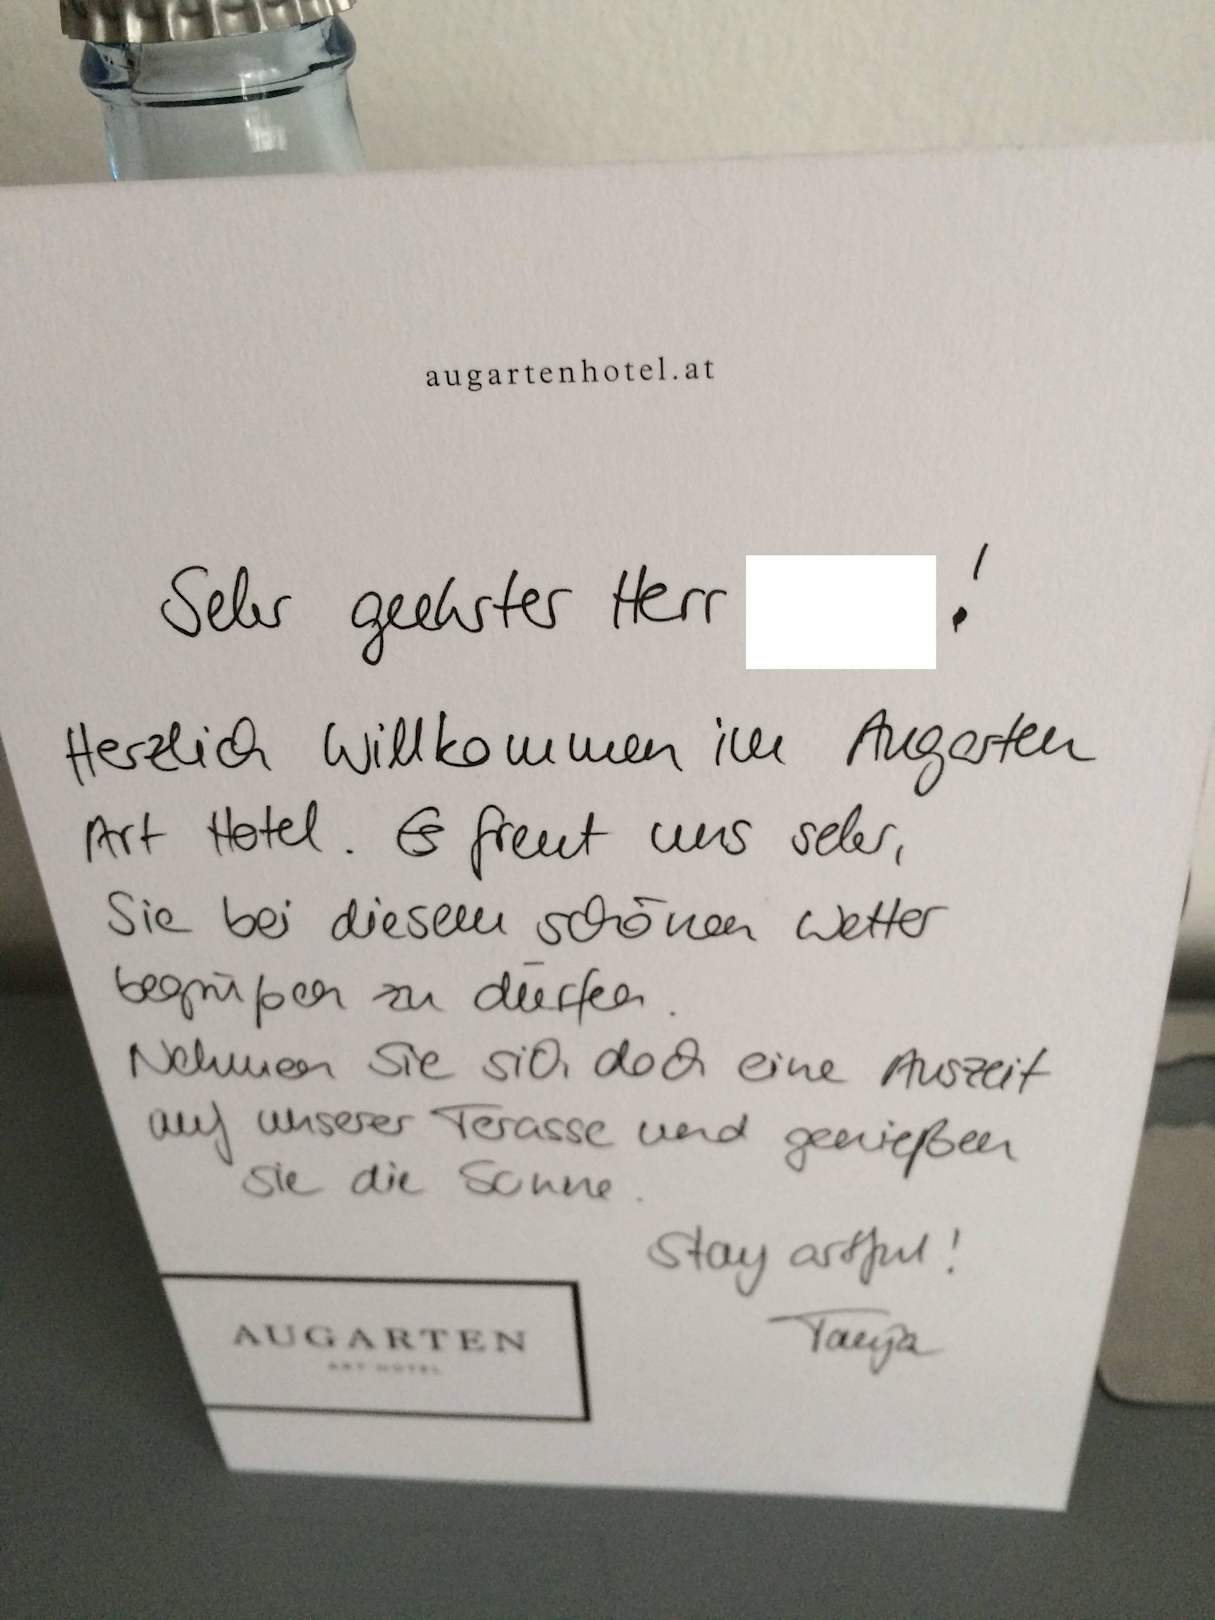 augartenhotel.at
Sehr geehrter Herr !
Herzlich Willkommen im Augarten
Art Hotel. Es freut uns sehr,
Sie bei diesem schönen Wetter
begrüßen zu dürfen.
Nehmen Sie sich doch eine Auszeit
auf unserer Terasse und genießen
sie die Sonne.
Stay artful!
Tanja
AUGARTEN
ART HOTEL